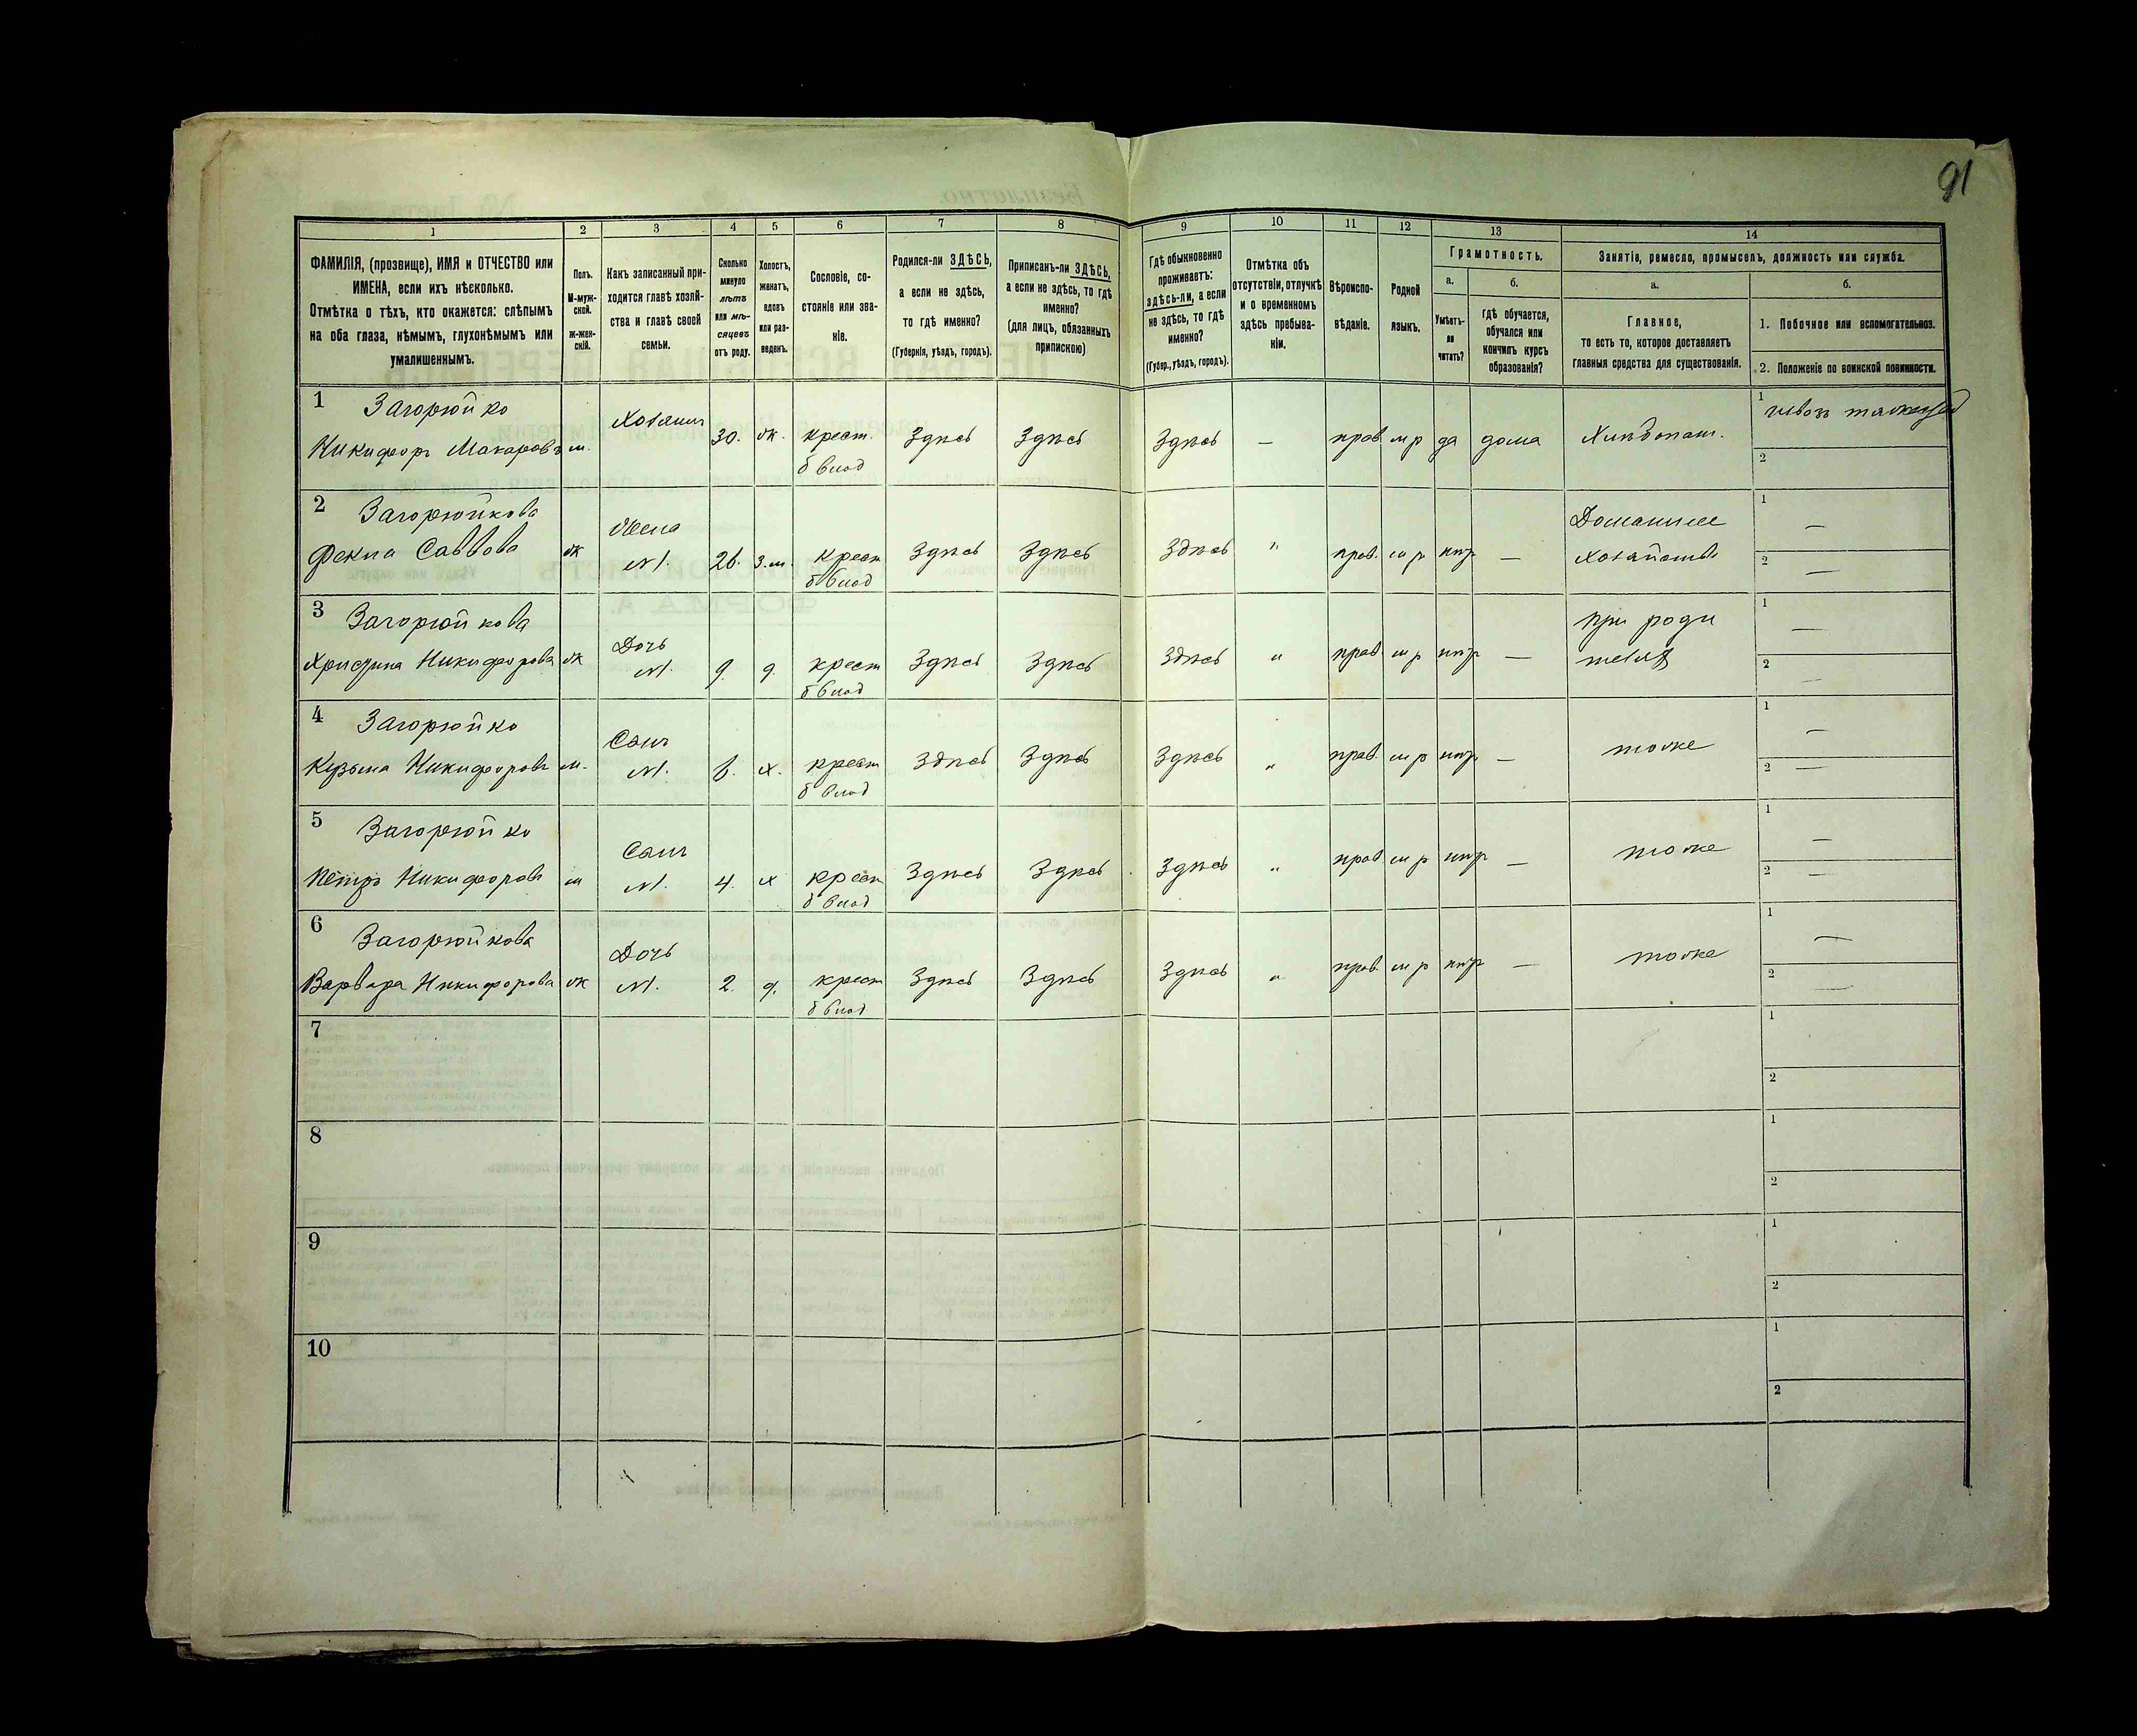 91
1
2
3
4
5
6
7
8
9
10
11
12
13
14
ФАМИЛІЯ, (прозвище), ИМЯ и ОТЧЕСТВО или
ИМЕНА, если ихъ нѣсколько.
Отмѣтка о тѣхъ, кто окажется: слѣпымъ
на оба глаза, нѣмымъ, глухонѣмымъ или
умалишеннымъ.
Полъ.
М-муж-
ской.
Ж-жен-
скій.
Какъ записанный при-
ходится главѣ хозяй-
ства и главѣ своей
семьи.
Сколько
минуло
лѣтъ
или мѣ-
сяцевъ
отъ роду.
Холостъ,
женатъ,
вдовъ
или раз-
веденъ.
Сословіе, со-
стояніе или зва-
ніе.
Родился-ли ЗДѢСЬ,
а если не здѣсь,
то гдѣ именно?
(Губернія, уѣздъ, городъ).
Приписанъ-ли ЗДѢСЬ,
а если не здѣсь, то гдѣ
именно?
(для лицъ, обязанныхъ
припискою)
Гдѣ обыкновенно
проживаетъ:
здѣсь-ли, а если
не здѣсь, то гдѣ
именно?
(Губер., уѣздъ, городъ).
Отмѣтка объ
отсутствіи, отлучкѣ
и о временномъ
здѣсь пребыва-
ніи.
Вѣроиспо-
вѣданіе.
Родной
языкъ.
Грамотность.
а.
Умѣетъ-
ли
читать?
б.
Гдѣ обучается,
обучался или
кончилъ курсъ
образованія?
Занятіе, ремесло, промыселъ, должность или служба.
а.
Главное,
то есть то, которое доставляетъ
главныя средства для существованія.
б.
1. Побочное или вспомогательное.
2. Положеніе по воинской повинности.
1 Загорюйко
Никифоръ Макаровъ м. Хозяинъ 30. ж. крест. Здѣсь Здѣсь Здѣсь — прав м р да дома Хлѣбопаш.
б влад
1
2
2 Загорюйкова
Фекла Саввова ж Жена
М. 26. з.м. крест Здѣсь Здѣсь Здѣсь " прав. м р нѣт — Домашнее
б влад хозяйство
1 —
2 —
3 Загорюйкова
Христина Никифорова ж Дочь
М. 9. д. крест Здѣсь Здѣсь Здѣсь " прав м р нѣт — При роди
б влад теляхъ
1 —
2 —
4 Загорюйко
Кузьма Никифоровъ м. Сынъ
М. 6. х. крест Здѣсь Здѣсь Здѣсь " прав. м р нѣт — тоже
б влад
1 —
2 —
5 Загорюйко
Петръ Никифоровъ м Сынъ
М. 4. х крест Здѣсь Здѣсь Здѣсь " прав м р нѣт — тоже
б влад
1 —
2 —
6 Загорюйкова
Варвара Никифорова ж Дочь
М. 2. д. крест Здѣсь Здѣсь Здѣсь " прав. м р нѣт — тоже
б влад
1 —
2 —
7
1
2
8
1
2
9
1
2
10
1
2